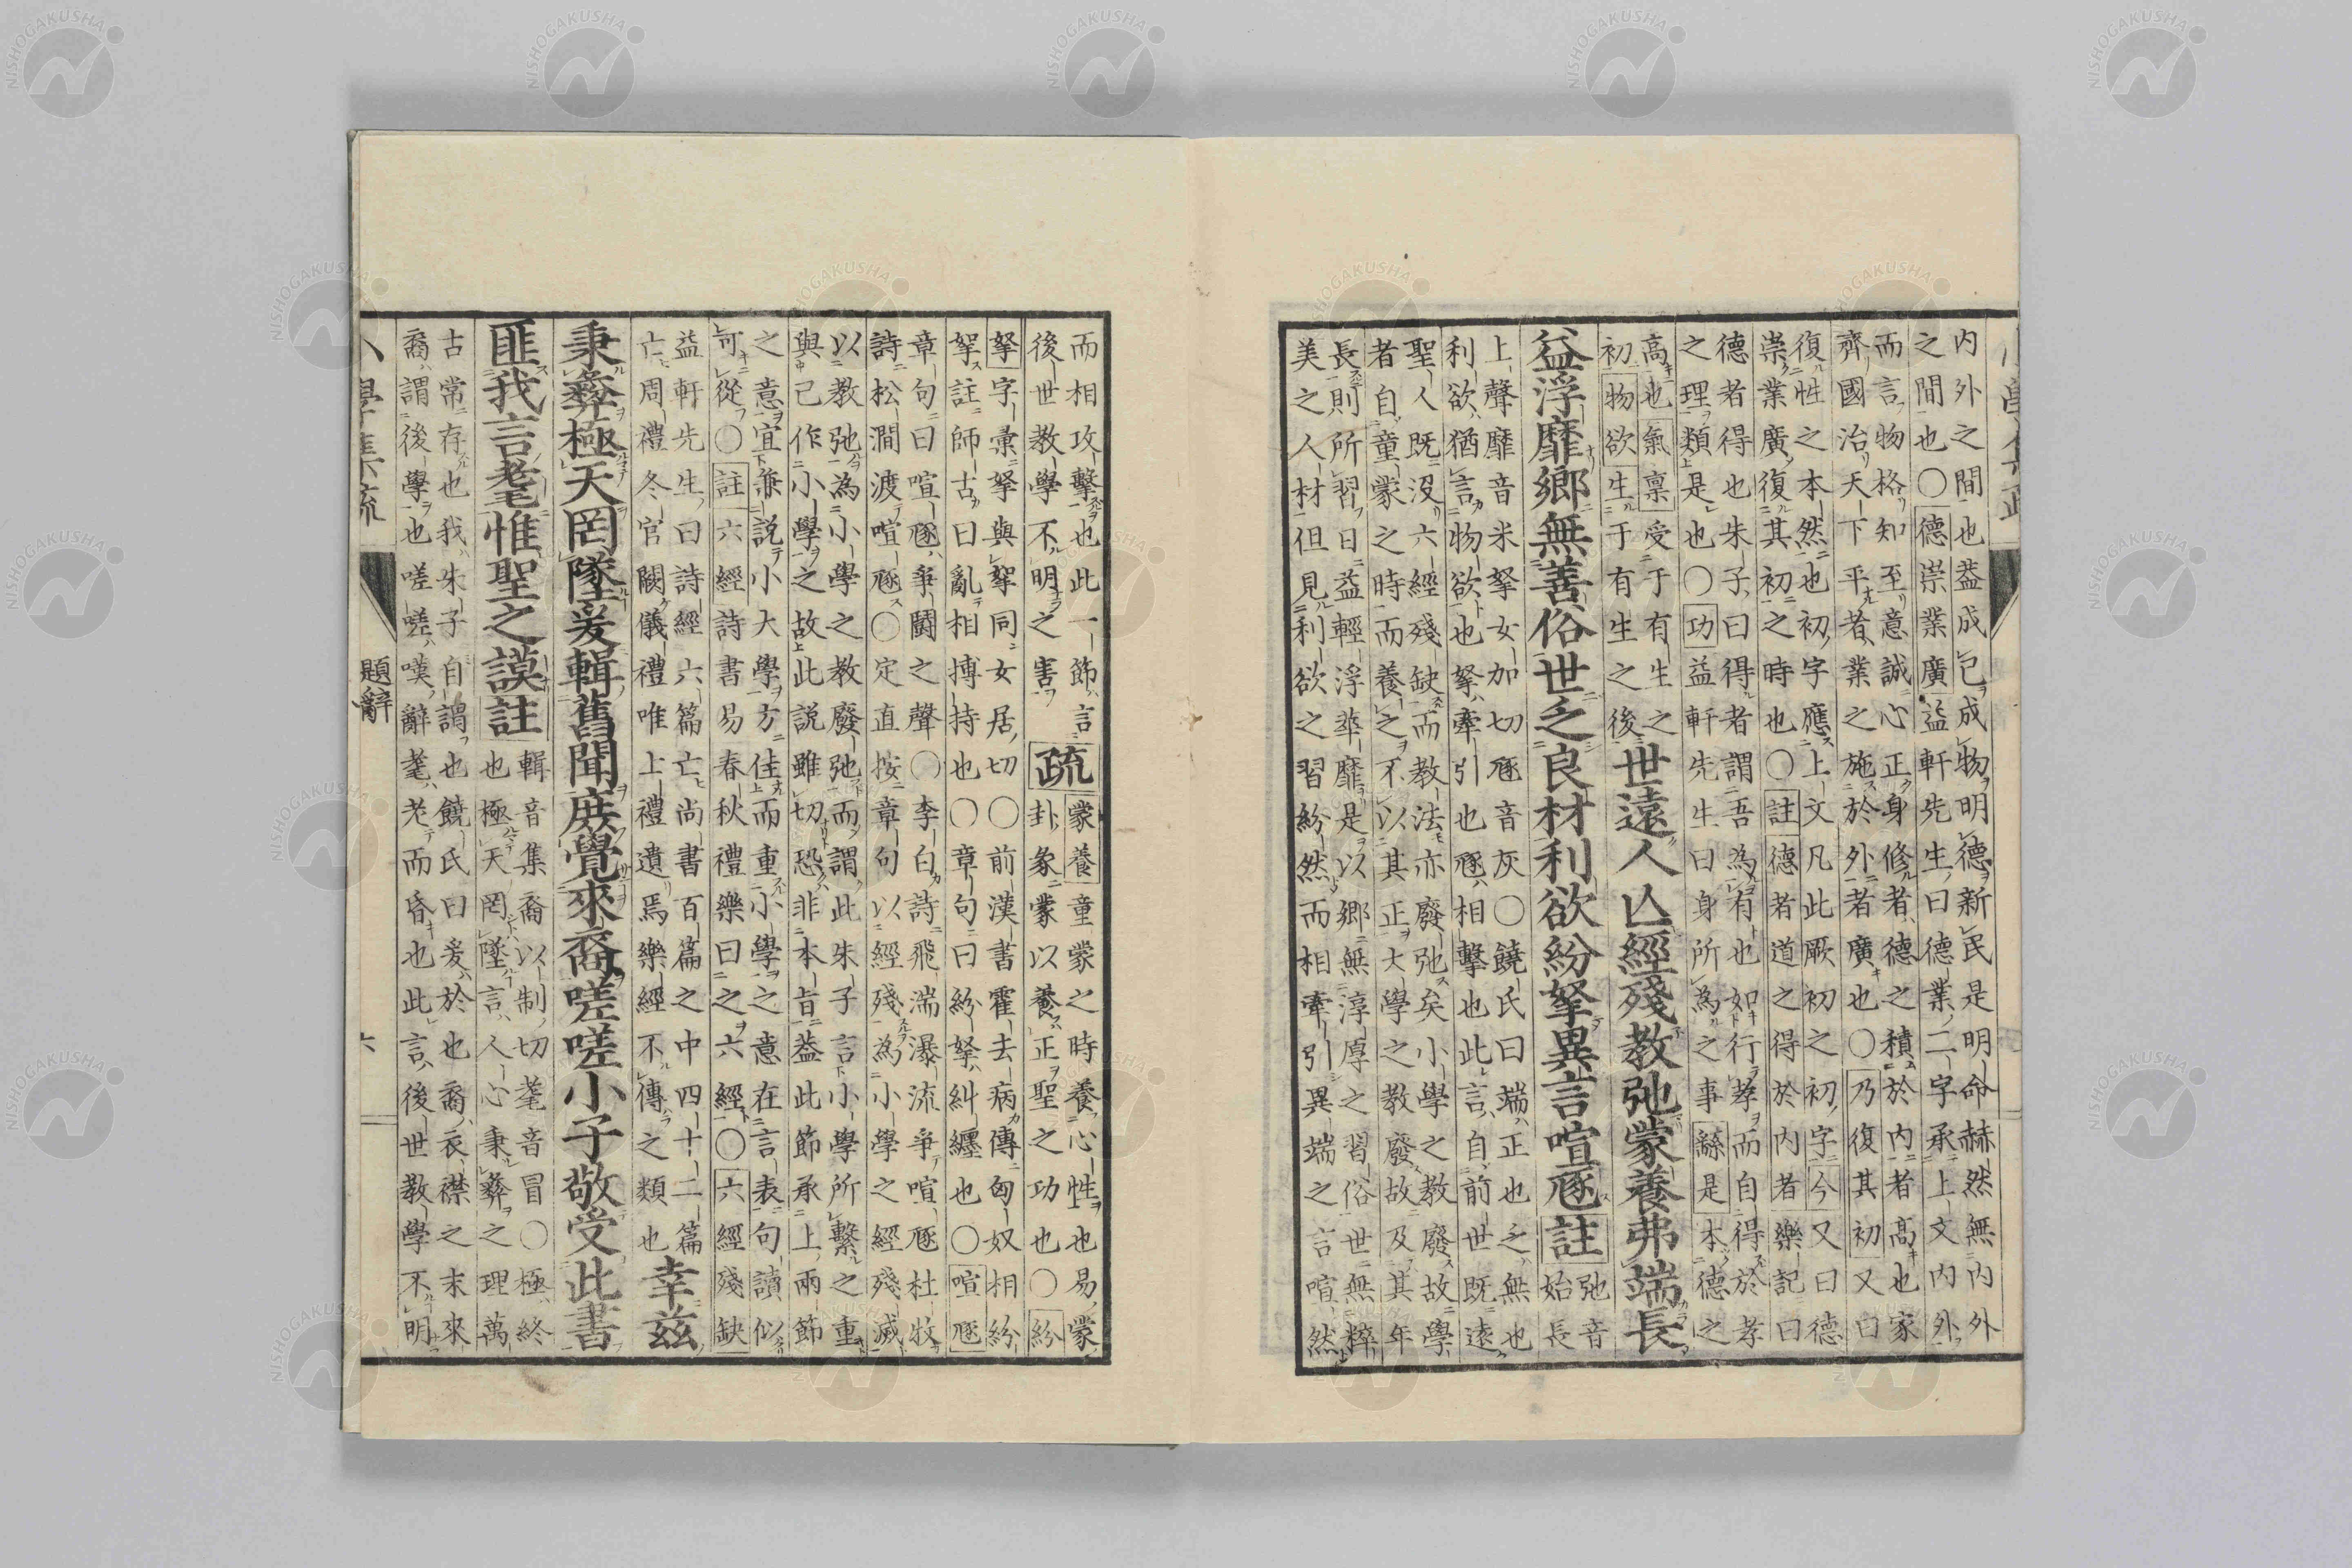 内外之間也葢成已成物明德新民是明命赫然無内外
之間也〇德崇業廣益軒先生曰德業二字承上文内外
而言物格知至意誠心正身修者德之積於内者高也家
齊國治天下平者業之施於外者廣也〇乃復其初又曰
復性之本然也初字應上文凡此厥初之初字今又曰德
崇業廣復其初之時也〇註德者道之得於内者樂記曰
德者得也朱子曰得者謂吾為有也如行孝而自得於孝
之理類是也〇功益軒先生曰身所為之事繇是本德之
高也氣禀受于有生之
初物欲生于有生之後
世遠人亾經殘教弛蒙養弗端長
益浮靡鄉無善俗世乏良材利欲紛拏異言喧豗註
弛音
始長
上聲靡音米拏女加切豗音灰〇饒氏曰端正也乏無也
利欲猶言物欲也拏牽引也豗相擊也此言自前世既遠
聖人既沒六經殘缺而教法亦廢弛矣小學之教廢故學
者自童蒙之時而養之不以其正大學之教廢故及其年
長則所習日益輕浮華靡是以鄉無淳厚之習俗世無粹
美之人材但見利欲之習紛然而相牽引異端之言喧然
而相攻擊也此一節言
後世教學不明之害
疏
蒙養童蒙之時養心性也易蒙
卦彖蒙以養正聖之功也〇紛
拏字彙拏與挐同女居切〇前漢書霍去病傳匈奴相紛
挐註師古曰亂相搏持也〇章句曰紛拏糾纒也〇喧豗
章句曰喧豗爭鬪之聲〇李白詩飛湍瀑流爭喧豗杜牧
詩松澗渡喧豗〇定直按章句以經殘為小學之經殘滅
以教弛為小學之教廢弛而謂此朱子言小學所繫之重
與己作小學之故此說雖切恐非本旨葢此節承上兩節
之意宜兼說小大學方佳而重小學之意在言表句讀似
可從〇註六經詩書易春秋禮樂曰之六經〇六經殘缺
益軒先生曰詩經六篇亡尚書百篇之中四十二篇
亡周禮冬官闕儀禮唯上禮遺焉樂經不傳之類也
幸茲
秉彝極天罔墜爰輯舊聞庶覺來裔嗟嗟小子敬受此書
匪我言耄惟聖之謨註
輯音集裔以制切耄音冒〇極終
也極天罔墜言人心秉彝之理萬
古常存也我朱子自謂也饒氏曰爰於也裔衣襟之末來
裔謂後學也嗟嗟嘆辭耄老而昏也此言後世教學不明
題辭
六